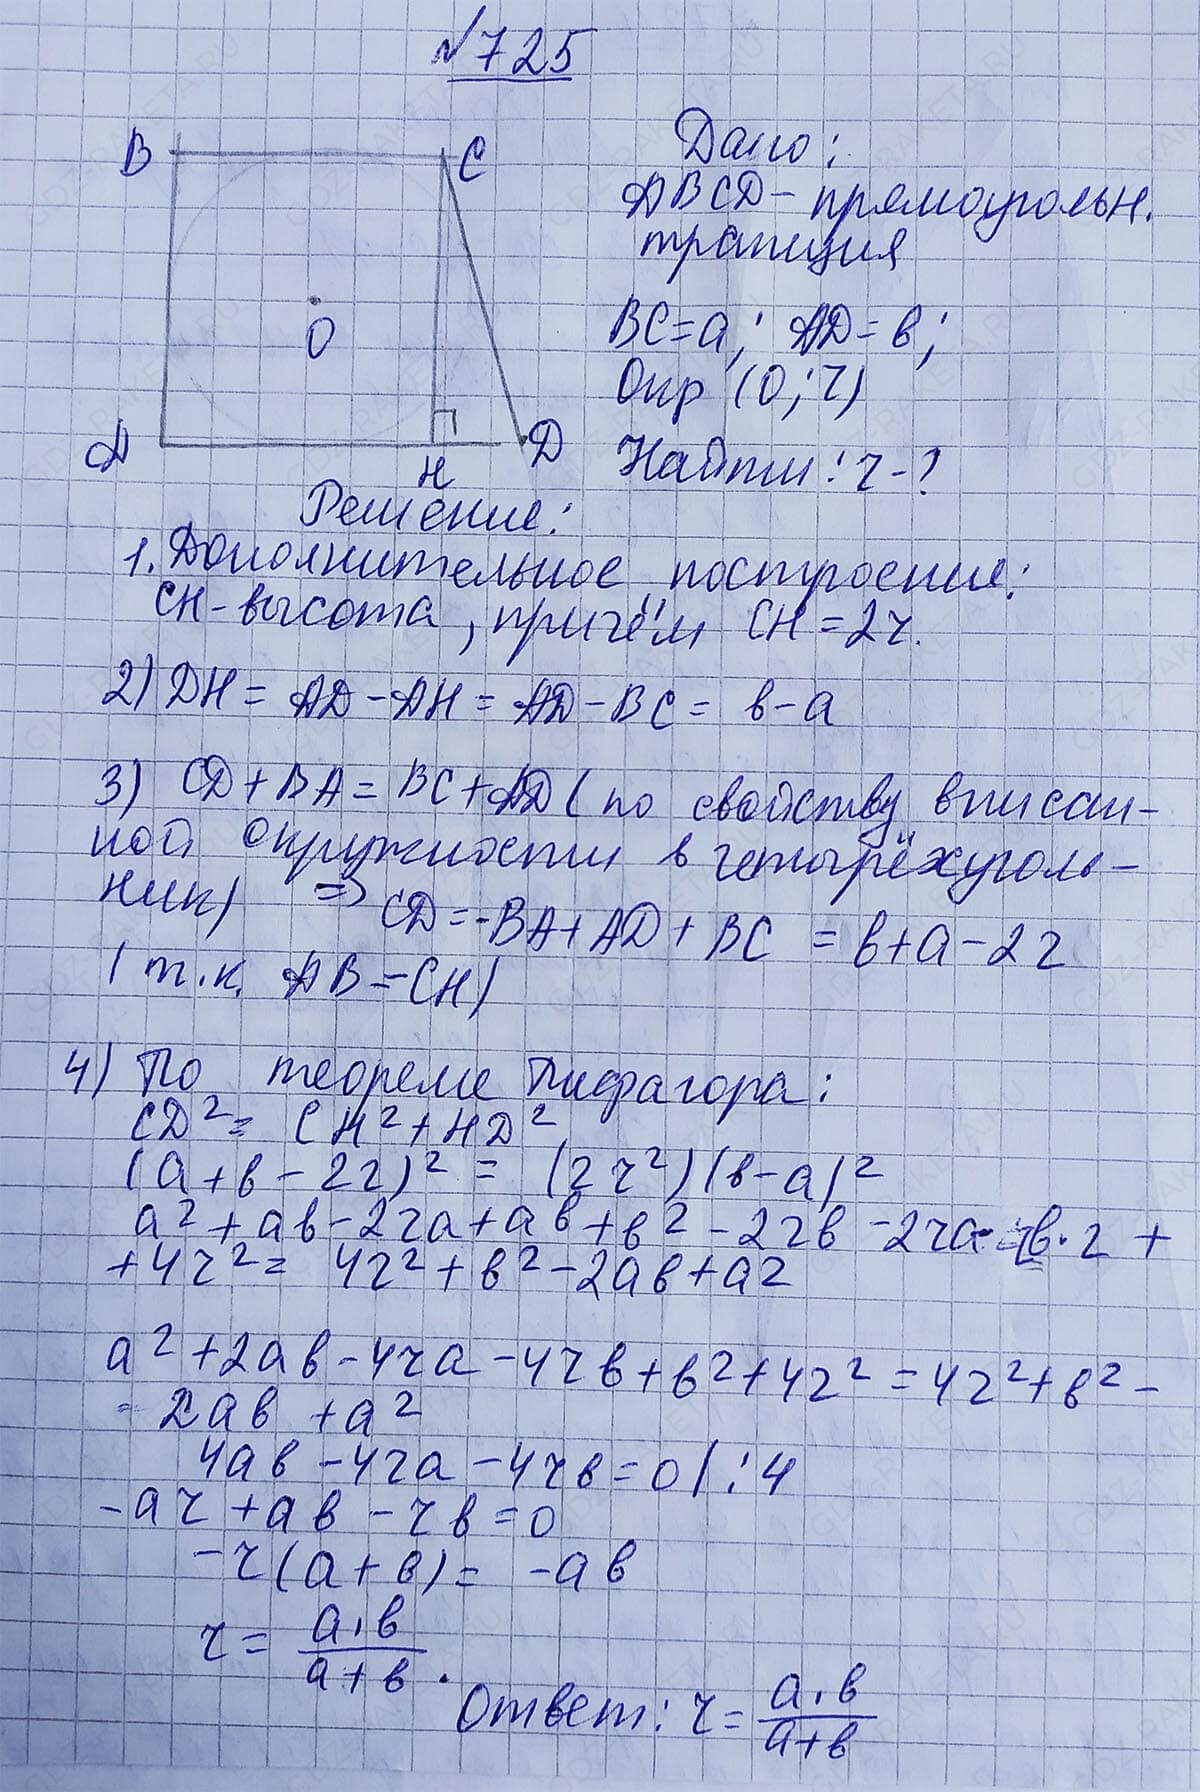 №725
B C
O
A H D
Дано:
ABCD - прямоугольн.
трапиция
BC=a; AD=в;
Окр (O; r)
Найти: r-?
Решение:
1. Дополнительное построение:
CH-высота, причём CH=2r.
2) DH = AD-AH = AD-BC = в-a
3) CD+BA = BC+AD (по свойству вписан-
ной окружности в четырёхуголь-
ник) => CD=-BA+AD+BC = в+a-2r
(т.к. AB=CH)
4) По теореме Пифагора:
CD² = CH²+HD²
(a+в-2r)² = (2r²)(в-a)²
a²+aв-2ra+aв+в²-2rв-2ra-2в·r +
+4r²= 4r²+в²-2aв+a2
a²+2aв-4ra-4rв+в²+4r²=4r²+в²-
-2aв+a²
4aв-4ra-4rв=0 |:4
-ar+aв-rв=0
-r(a+в)= -aв
r= a·в / a+в.
Ответ: r= a·в / a+в